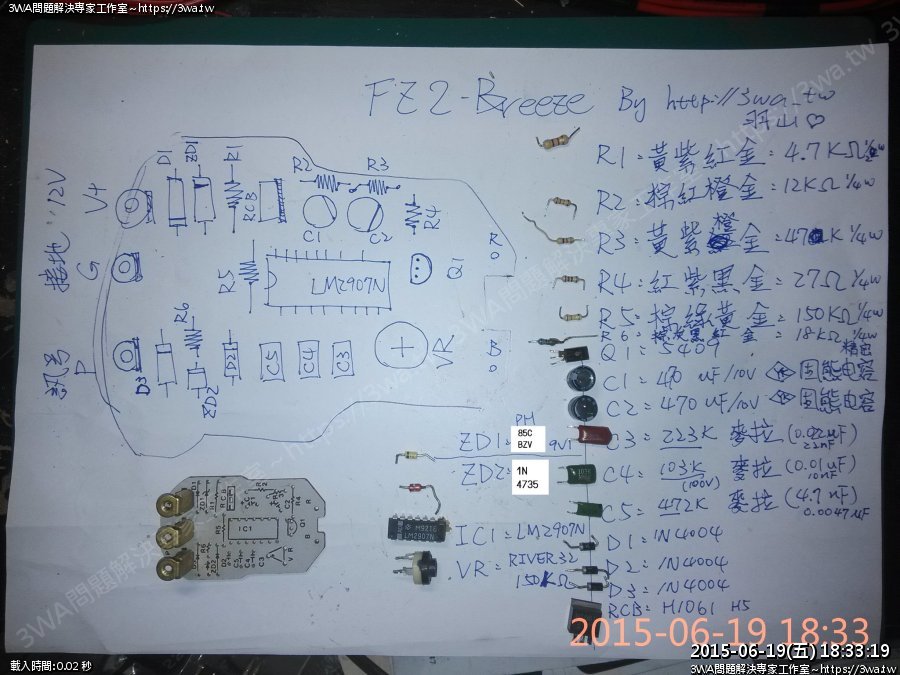 3WA問題解決專家工作室~https://3wa.tw
3WA問題解決專家工作室~https://3wa.tw
FZ2-Breeze By http://3wa.tw
羽山♡
R1:黃紫紅金:4.7KΩ 1/4w
R2:棕紅橙金:12KΩ 1/4w
R3:黃紫橙金:47K 1/4w
R4:紅紫黑金:27Ω 1/4w
R5:棕綠黃金:150KΩ 1/4w
R6:棕灰黑紅金:18KΩ 1/4w
精密
Q1:5409
C1:470uF/10V 固態电容
C2:470uF/10V 固態电容
C3:223K 麥拉(0.022uF)
22nF
C4:103K 麥拉(0.01uF)
(100V) 10nF
C5:472K 麥拉(4.7nF)
0.0047uF
D1:1N4004
D2:1N4004
D3:1N4004
RCB:H1061 H5
訊号 接地 12V
P G V+
D1 ZD1 R1 RCB R2 R3
C1 C2 R4
R5 LM2907N Q1
R
D3 R6 ZD2 D2 C5 C4 C3 VR
B
PH
ZD1:85C BZV 9V1
ZD2:1N 4735
IC1:LM2907N
VR:RIVER32
150KΩ
M9216
LM2907N
IC1
2015-06-19 18:33
2015-06-19(五) 18:33:19
載入時間:0.02 秒
3WA問題解決專家工作室~https://3wa.tw